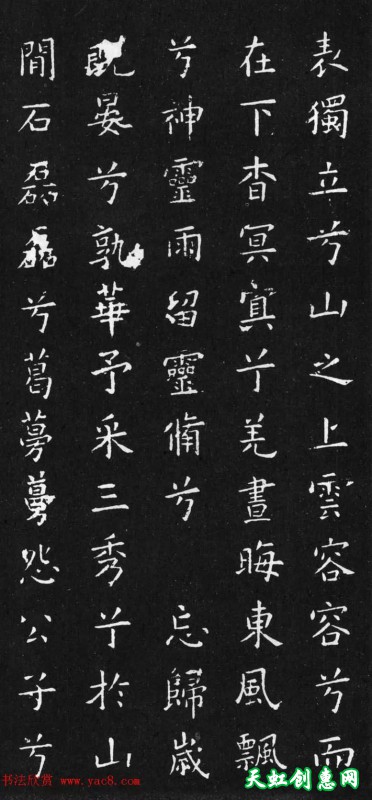 表獨立兮山之上雲容容兮而
在下杳冥冥兮羌晝晦東風飄
兮神靈雨留靈脩兮 忘歸歲
既晏兮孰華予采三秀兮於山
間石磊磊兮葛蔓蔓怨公子兮
书法欣赏 www.yac8.com
天虹创惠网